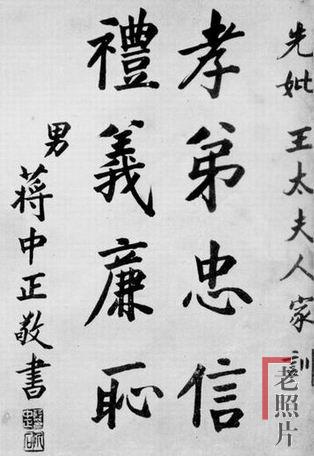 先妣王太夫人家訓
孝弟忠信
禮義廉恥
男
蔣中正敬書
老照片